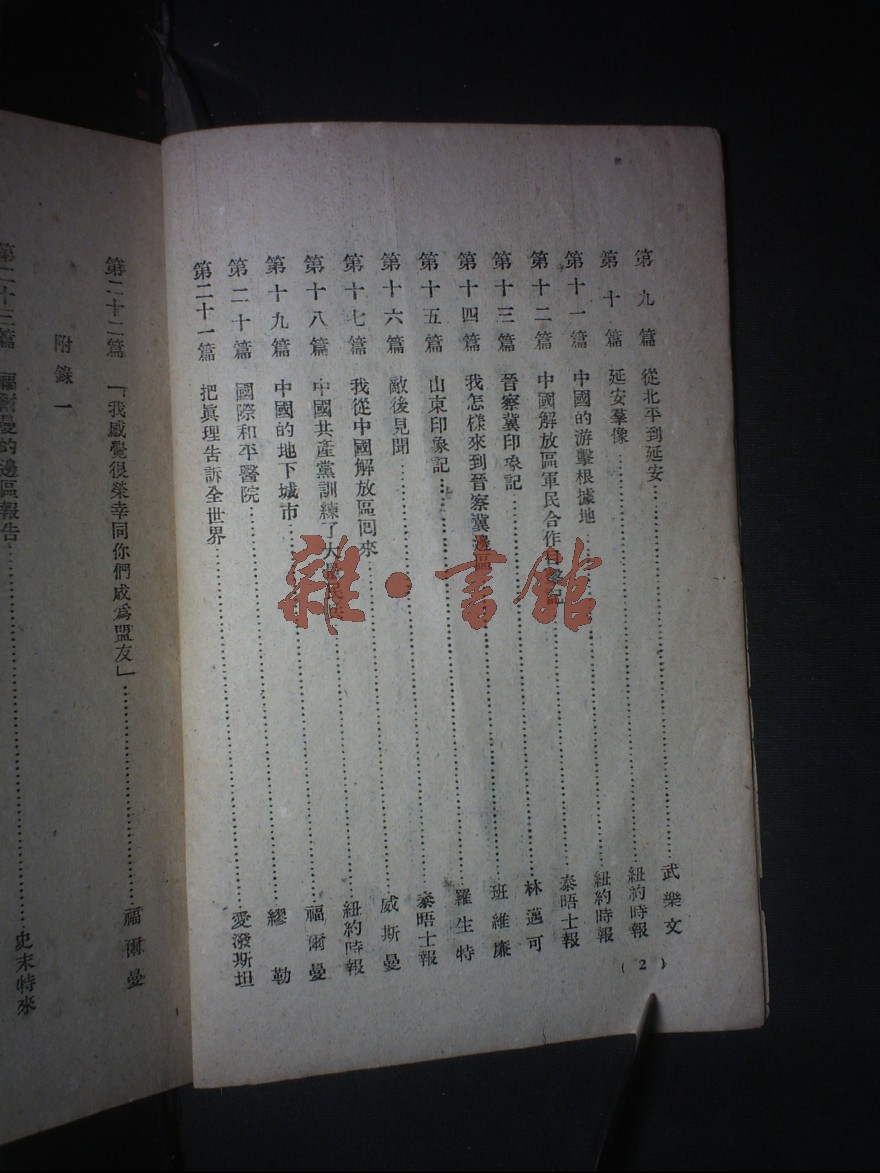 第九篇 從北平到延安……武樂文
第十篇 延安羣像……紐約時報
第十一篇 中國的游擊根據地……紐約時報
第十二篇 中國解放區軍民合作目擊記……泰晤士報
第十三篇 晉察冀印象記……林邁可
第十四篇 我怎樣來到晉察冀邊區……班維廉
第十五篇 山東印象記……羅生特
第十六篇 敵後見聞……泰晤士報
第十七篇 我從中國解放區回來……威斯曼
第十八篇 中國共產黨訓練了大量民兵……紐約時報
第十九篇 中國的地下城市……福爾曼
第二十篇 國際和平醫院……繆勒
第二十一篇 把眞理告訴全世界……愛潑斯坦
(2)
第二十二篇 「我感覺很榮幸同你們成爲盟友」……福爾曼
附錄一
第二十三篇 福爾曼的邊區報告……史末特來
雜·書館